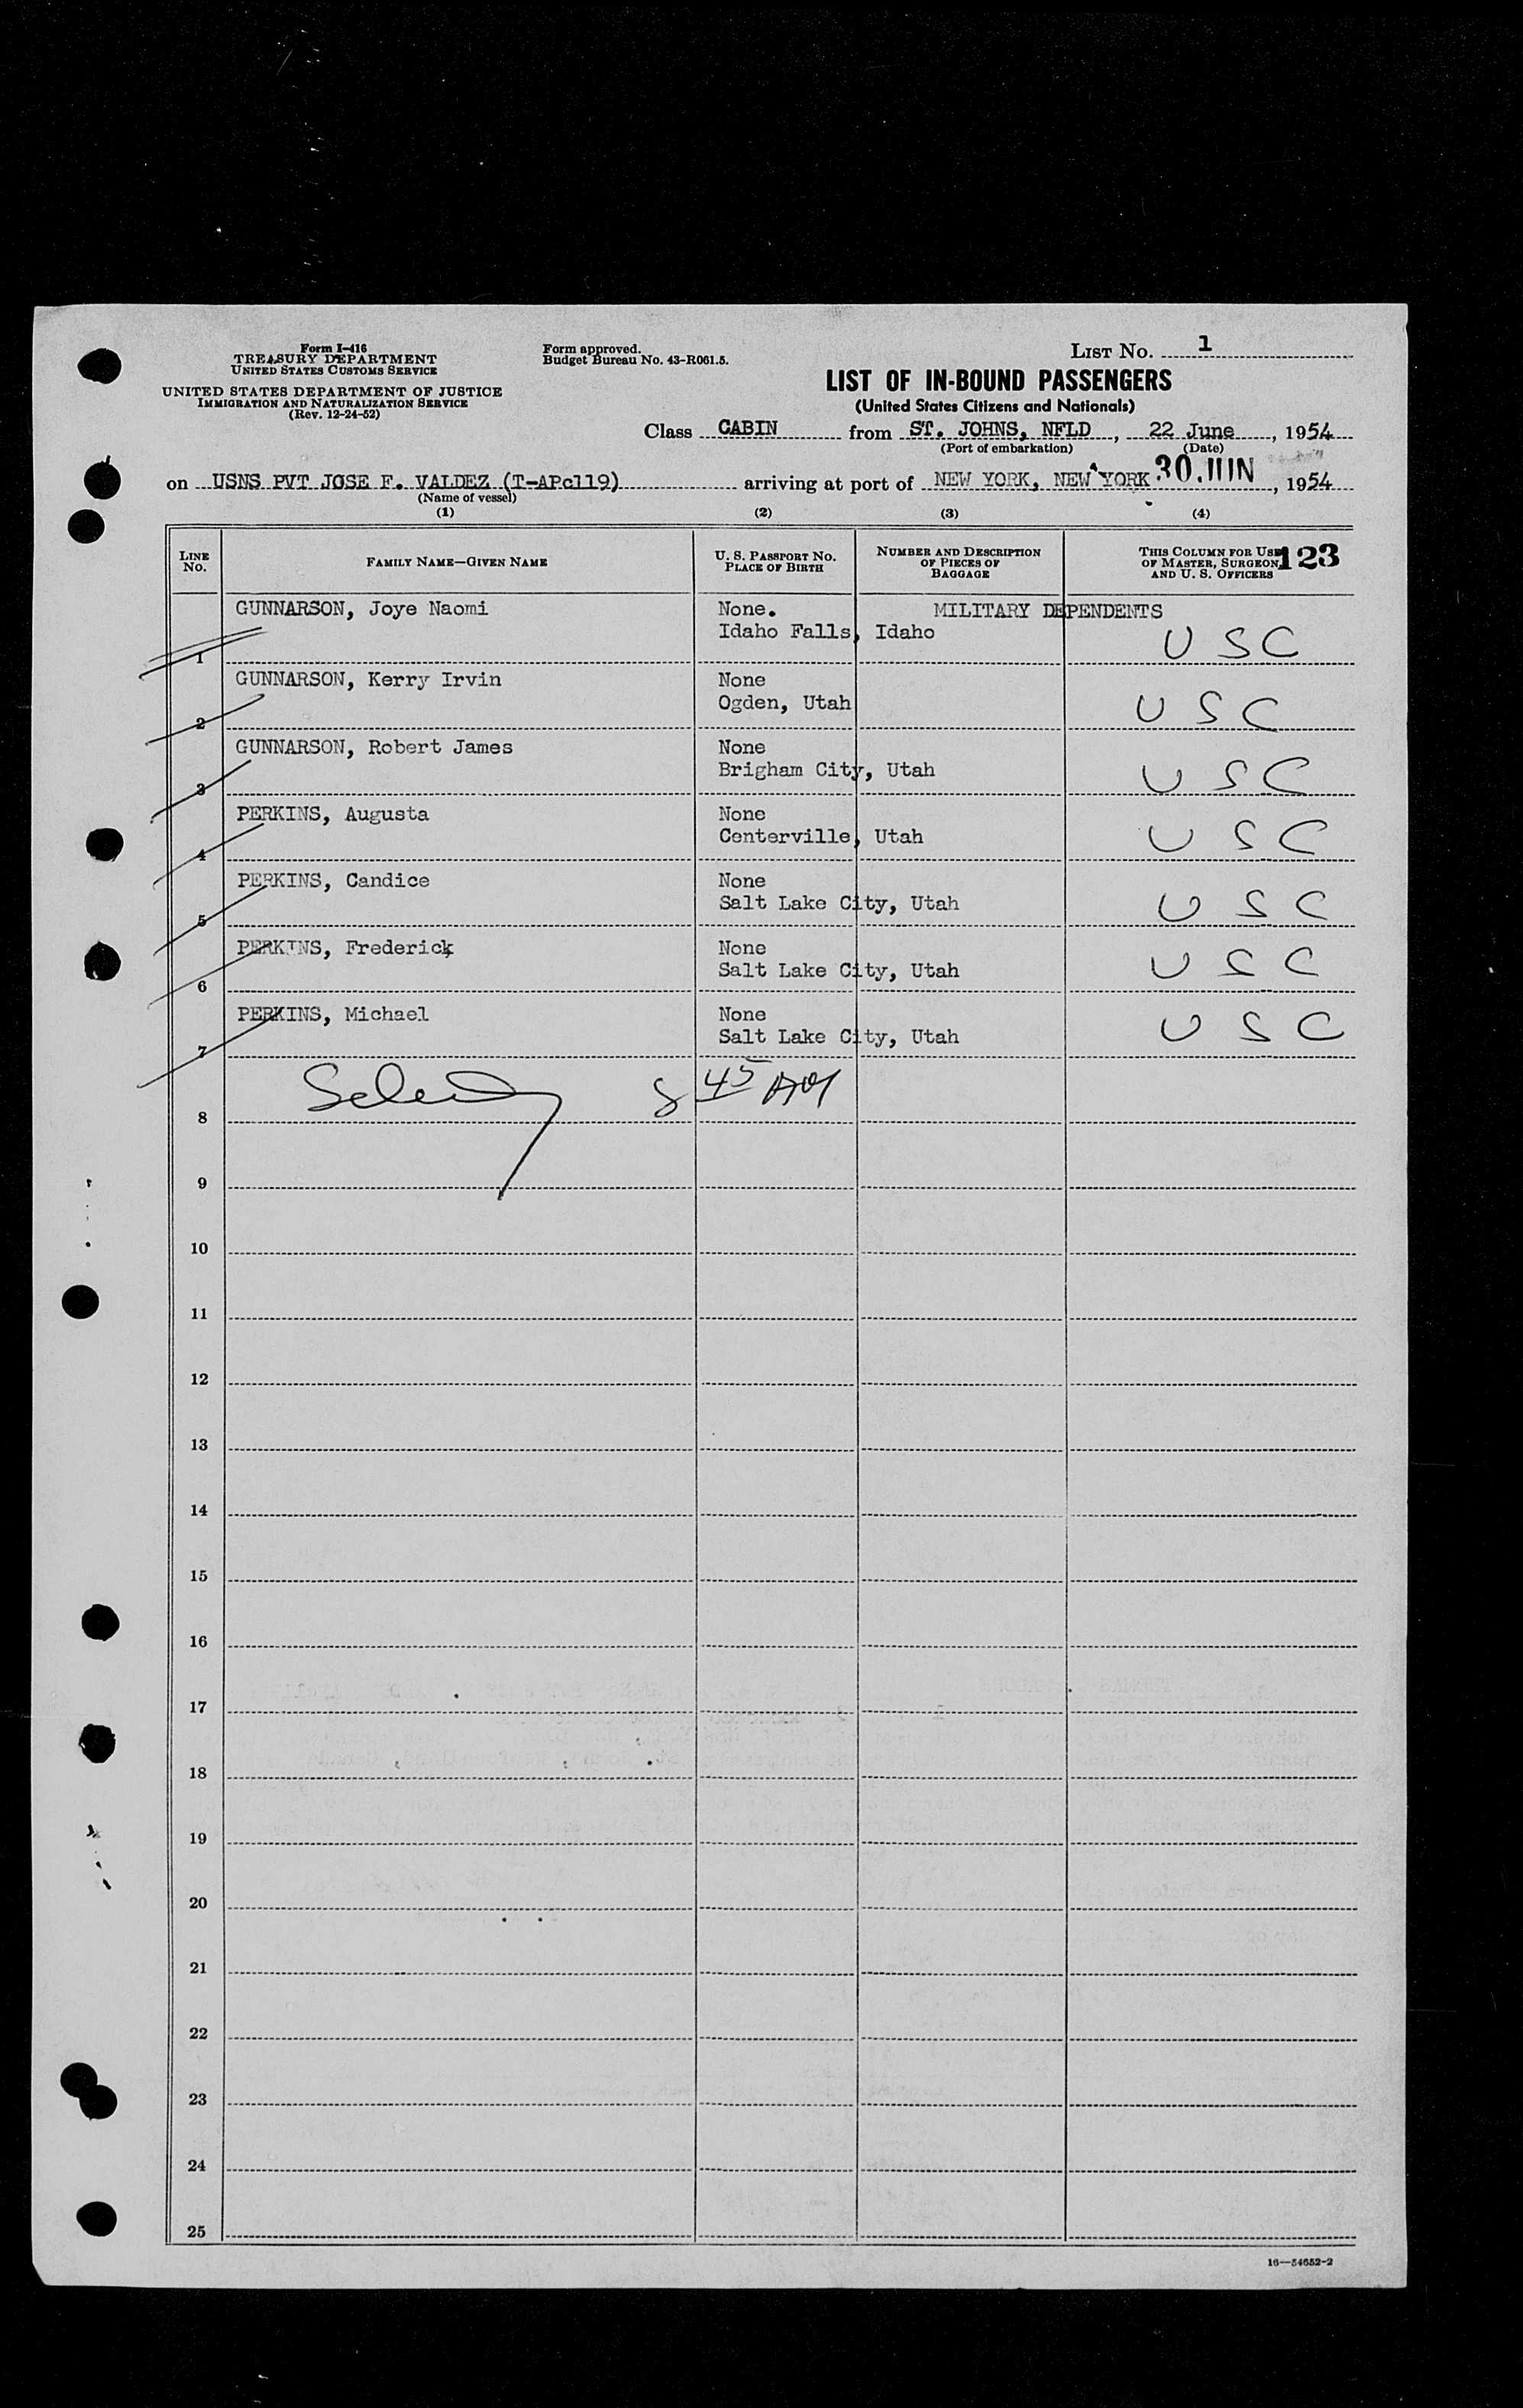 Form I-416
TREASURY DEPARTMENT
UNITED STATES CUSTOMS SERVICE
UNITED STATES DEPARTMENT OF JUSTICE
IMMIGRATION AND NATURALIZATION SERVICE
(Rev. 12-24-52)
Form approved.
Budget Bureau No. 43-R061.5.
LIST NO. 1
LIST OF IN-BOUND PASSENGERS
(United States Citizens and Nationals)
Class CABIN from ST. JOHNS, NFLD, 22 June, 1954
(Port of embarkation) (Date)
on USNS PVT JOSE F. VALDEZ (T-APc119) arriving at port of NEW YORK, NEW YORK 30 JUN, 1954
(Name of vessel)
(1) (2) (3) (4)
LINE NO.
FAMILY NAME—GIVEN NAME
U. S. PASSPORT NO.
PLACE OF BIRTH
NUMBER AND DESCRIPTION
OF PIECES OF
BAGGAGE
THIS COLUMN FOR USE
OF MASTER, SURGEON,
AND U. S. OFFICERS
123
GUNNARSON, Joye Naomi None. MILITARY DEPENDENTS
1 Idaho Falls, Idaho USC
GUNNARSON, Kerry Irvin None
2 Ogden, Utah USC
GUNNARSON, Robert James None
3 Brigham City, Utah USC
PERKINS, Augusta None
4 Centerville, Utah USC
PERKINS, Candice None
5 Salt Lake City, Utah USC
PERKINS, Frederick None
6 Salt Lake City, Utah USC
PERKINS, Michael None
7 Salt Lake City, Utah USC
8 8 45 AM
9
10
11
12
13
14
15
16
17
18
19
20
21
22
23
24
25
16—54652-2